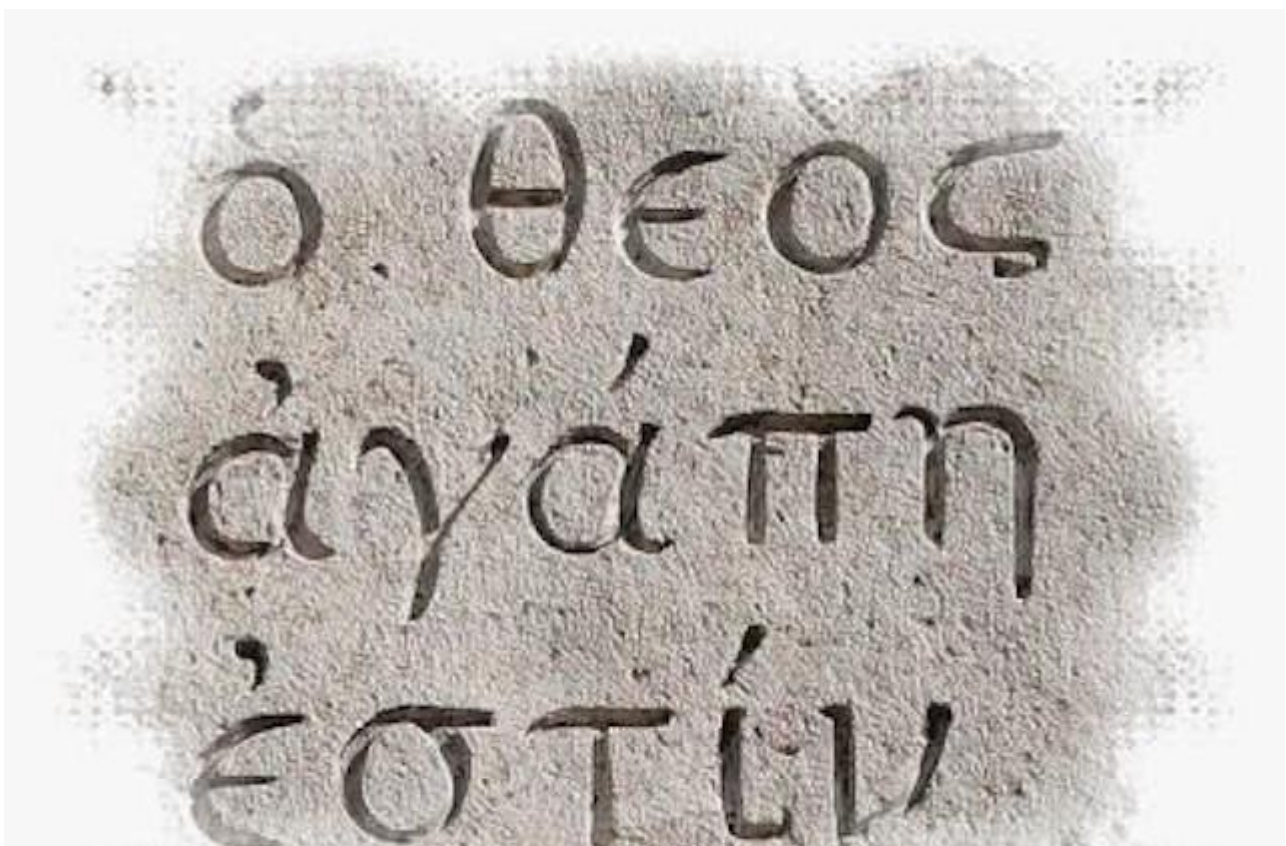 ὁ θεὸς
ἀγάπη
ἐστίν